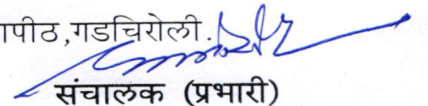 ापीठ,गडचिरोली.
संचालक (प्रभारी)